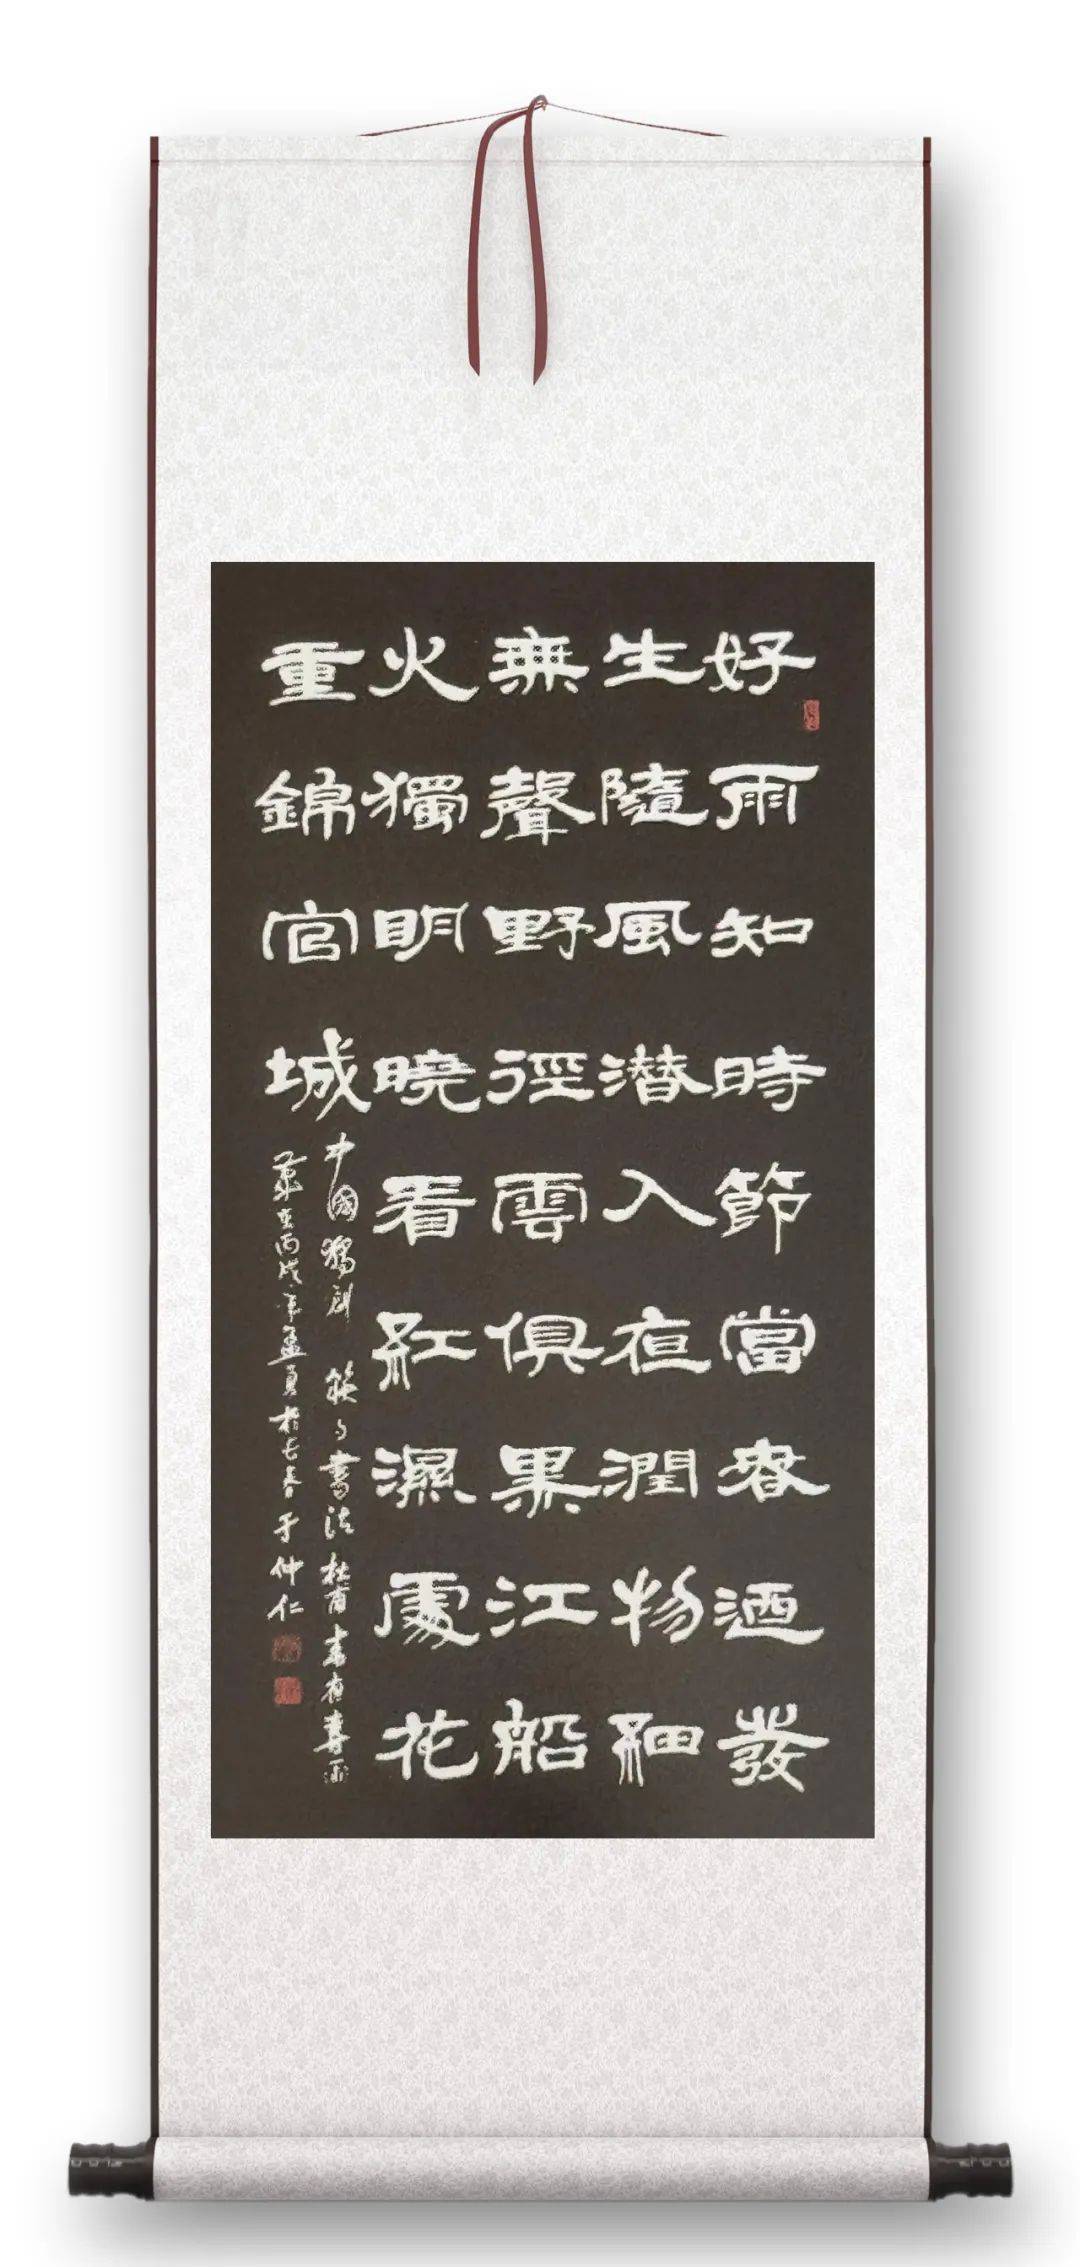 好雨知時節當春迺發
生隨風潜入夜潤物細
無聲野徑雲俱黑江船
火獨明曉看紅濕處花
重錦官城
中國獨創 筷子書法 杜甫春夜喜雨
歲在丙戌年孟夏於長春于仲仁